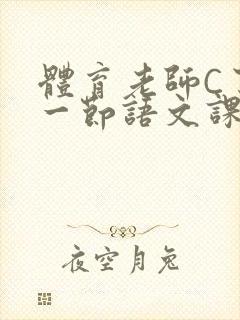 體育老師C
一節語文課
夜空月兔